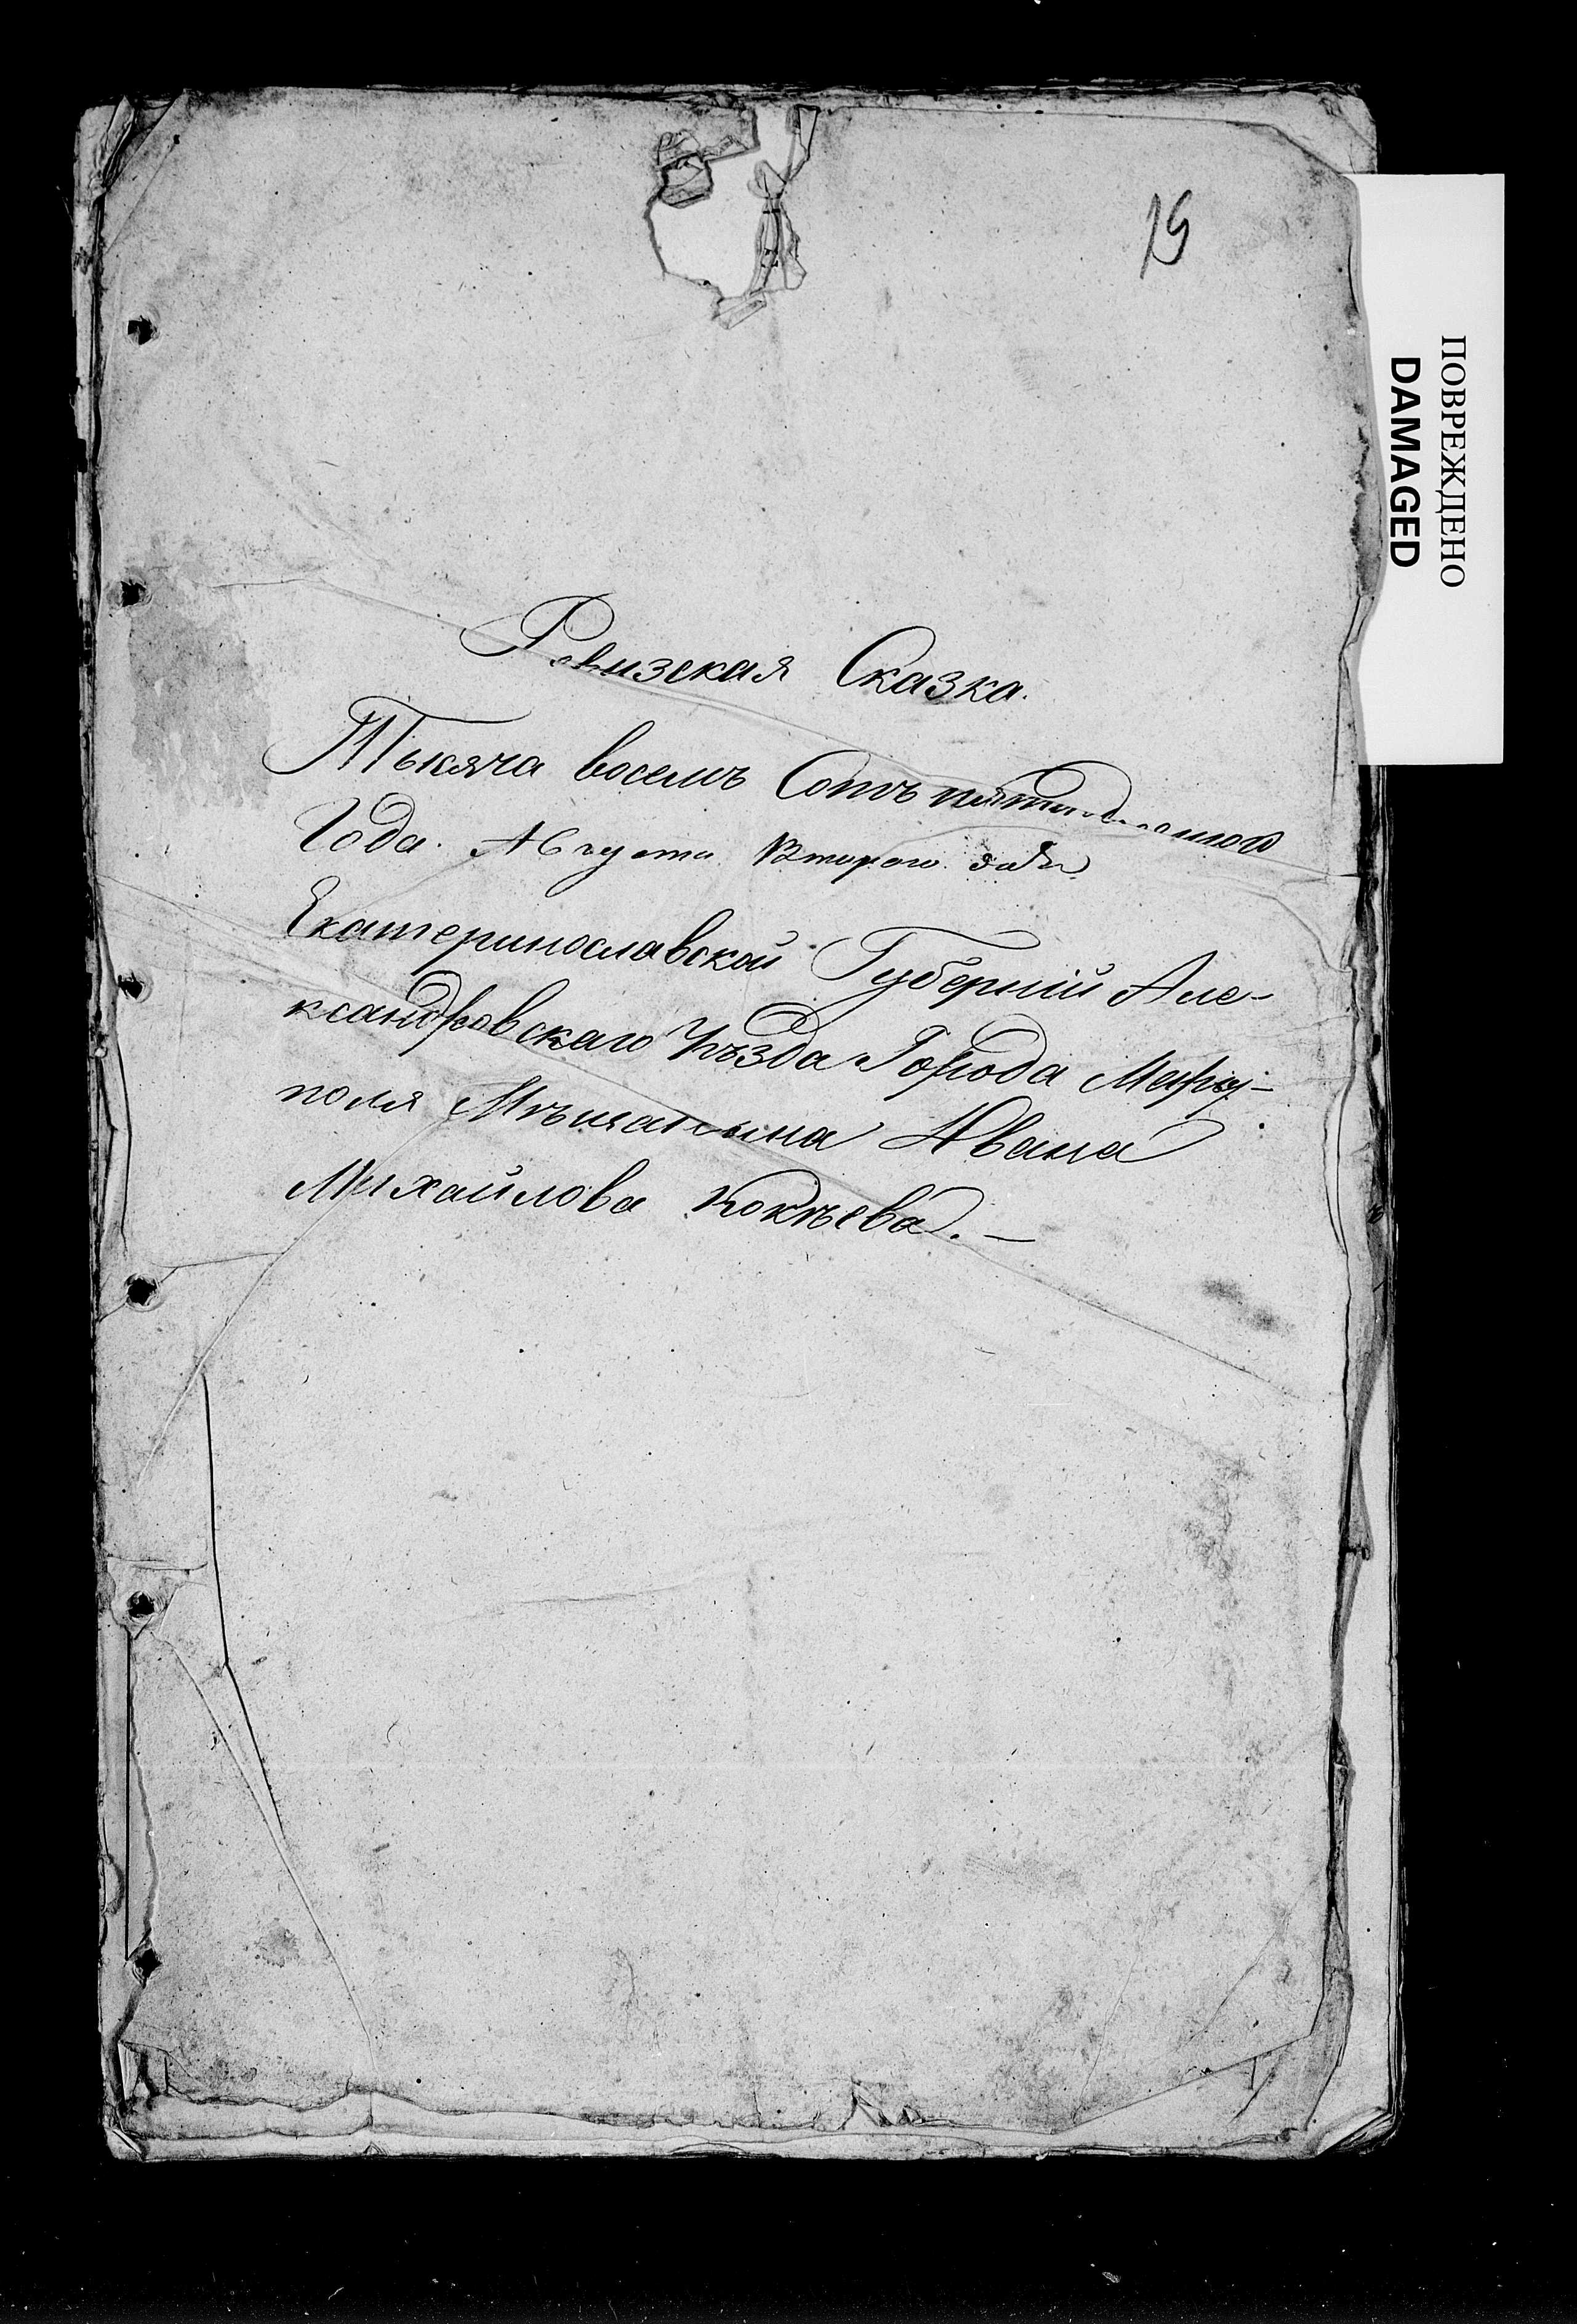 19
ПОВРЕЖДЕНО
DAMAGED
Ревизская Сказка.
Тысяча восемь Сотъ
Года. Августа Второго дня
Екатеринославской Губерніи Але-
ксандровскаго Уѣзда Города Мариу-
поля Мѣщанина Ивана
Михайлова Кокѣева. —